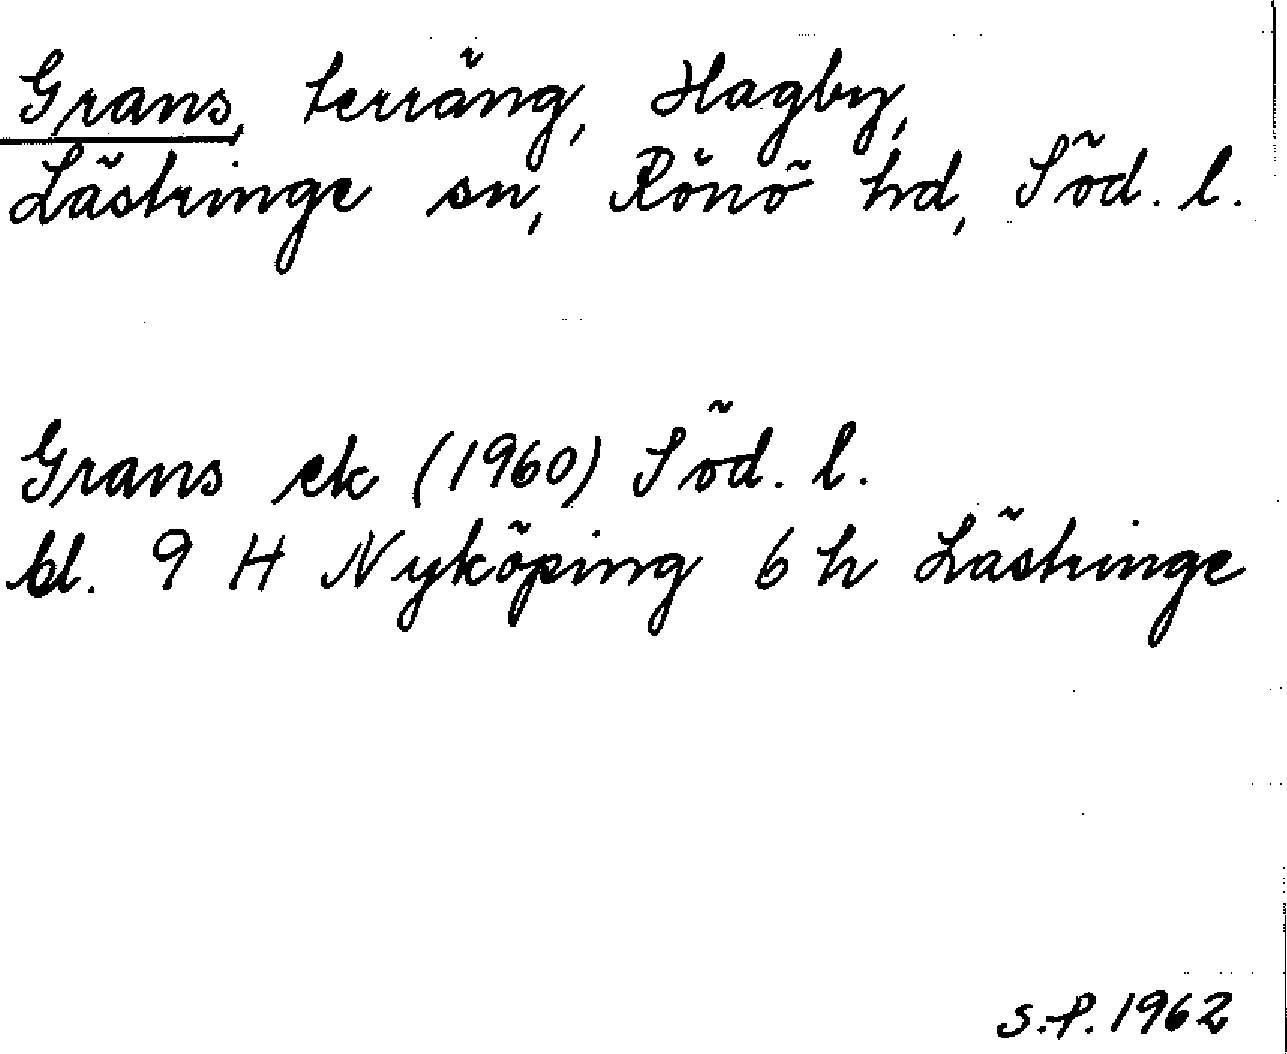 Grans, terräng, Hagby,
Lästringe sn, Rönö hd, Söd. l.
Grans ek (1960) Söd. l.
bl. 9 H Nyköping 6 h Lästringe
S.P. 1962